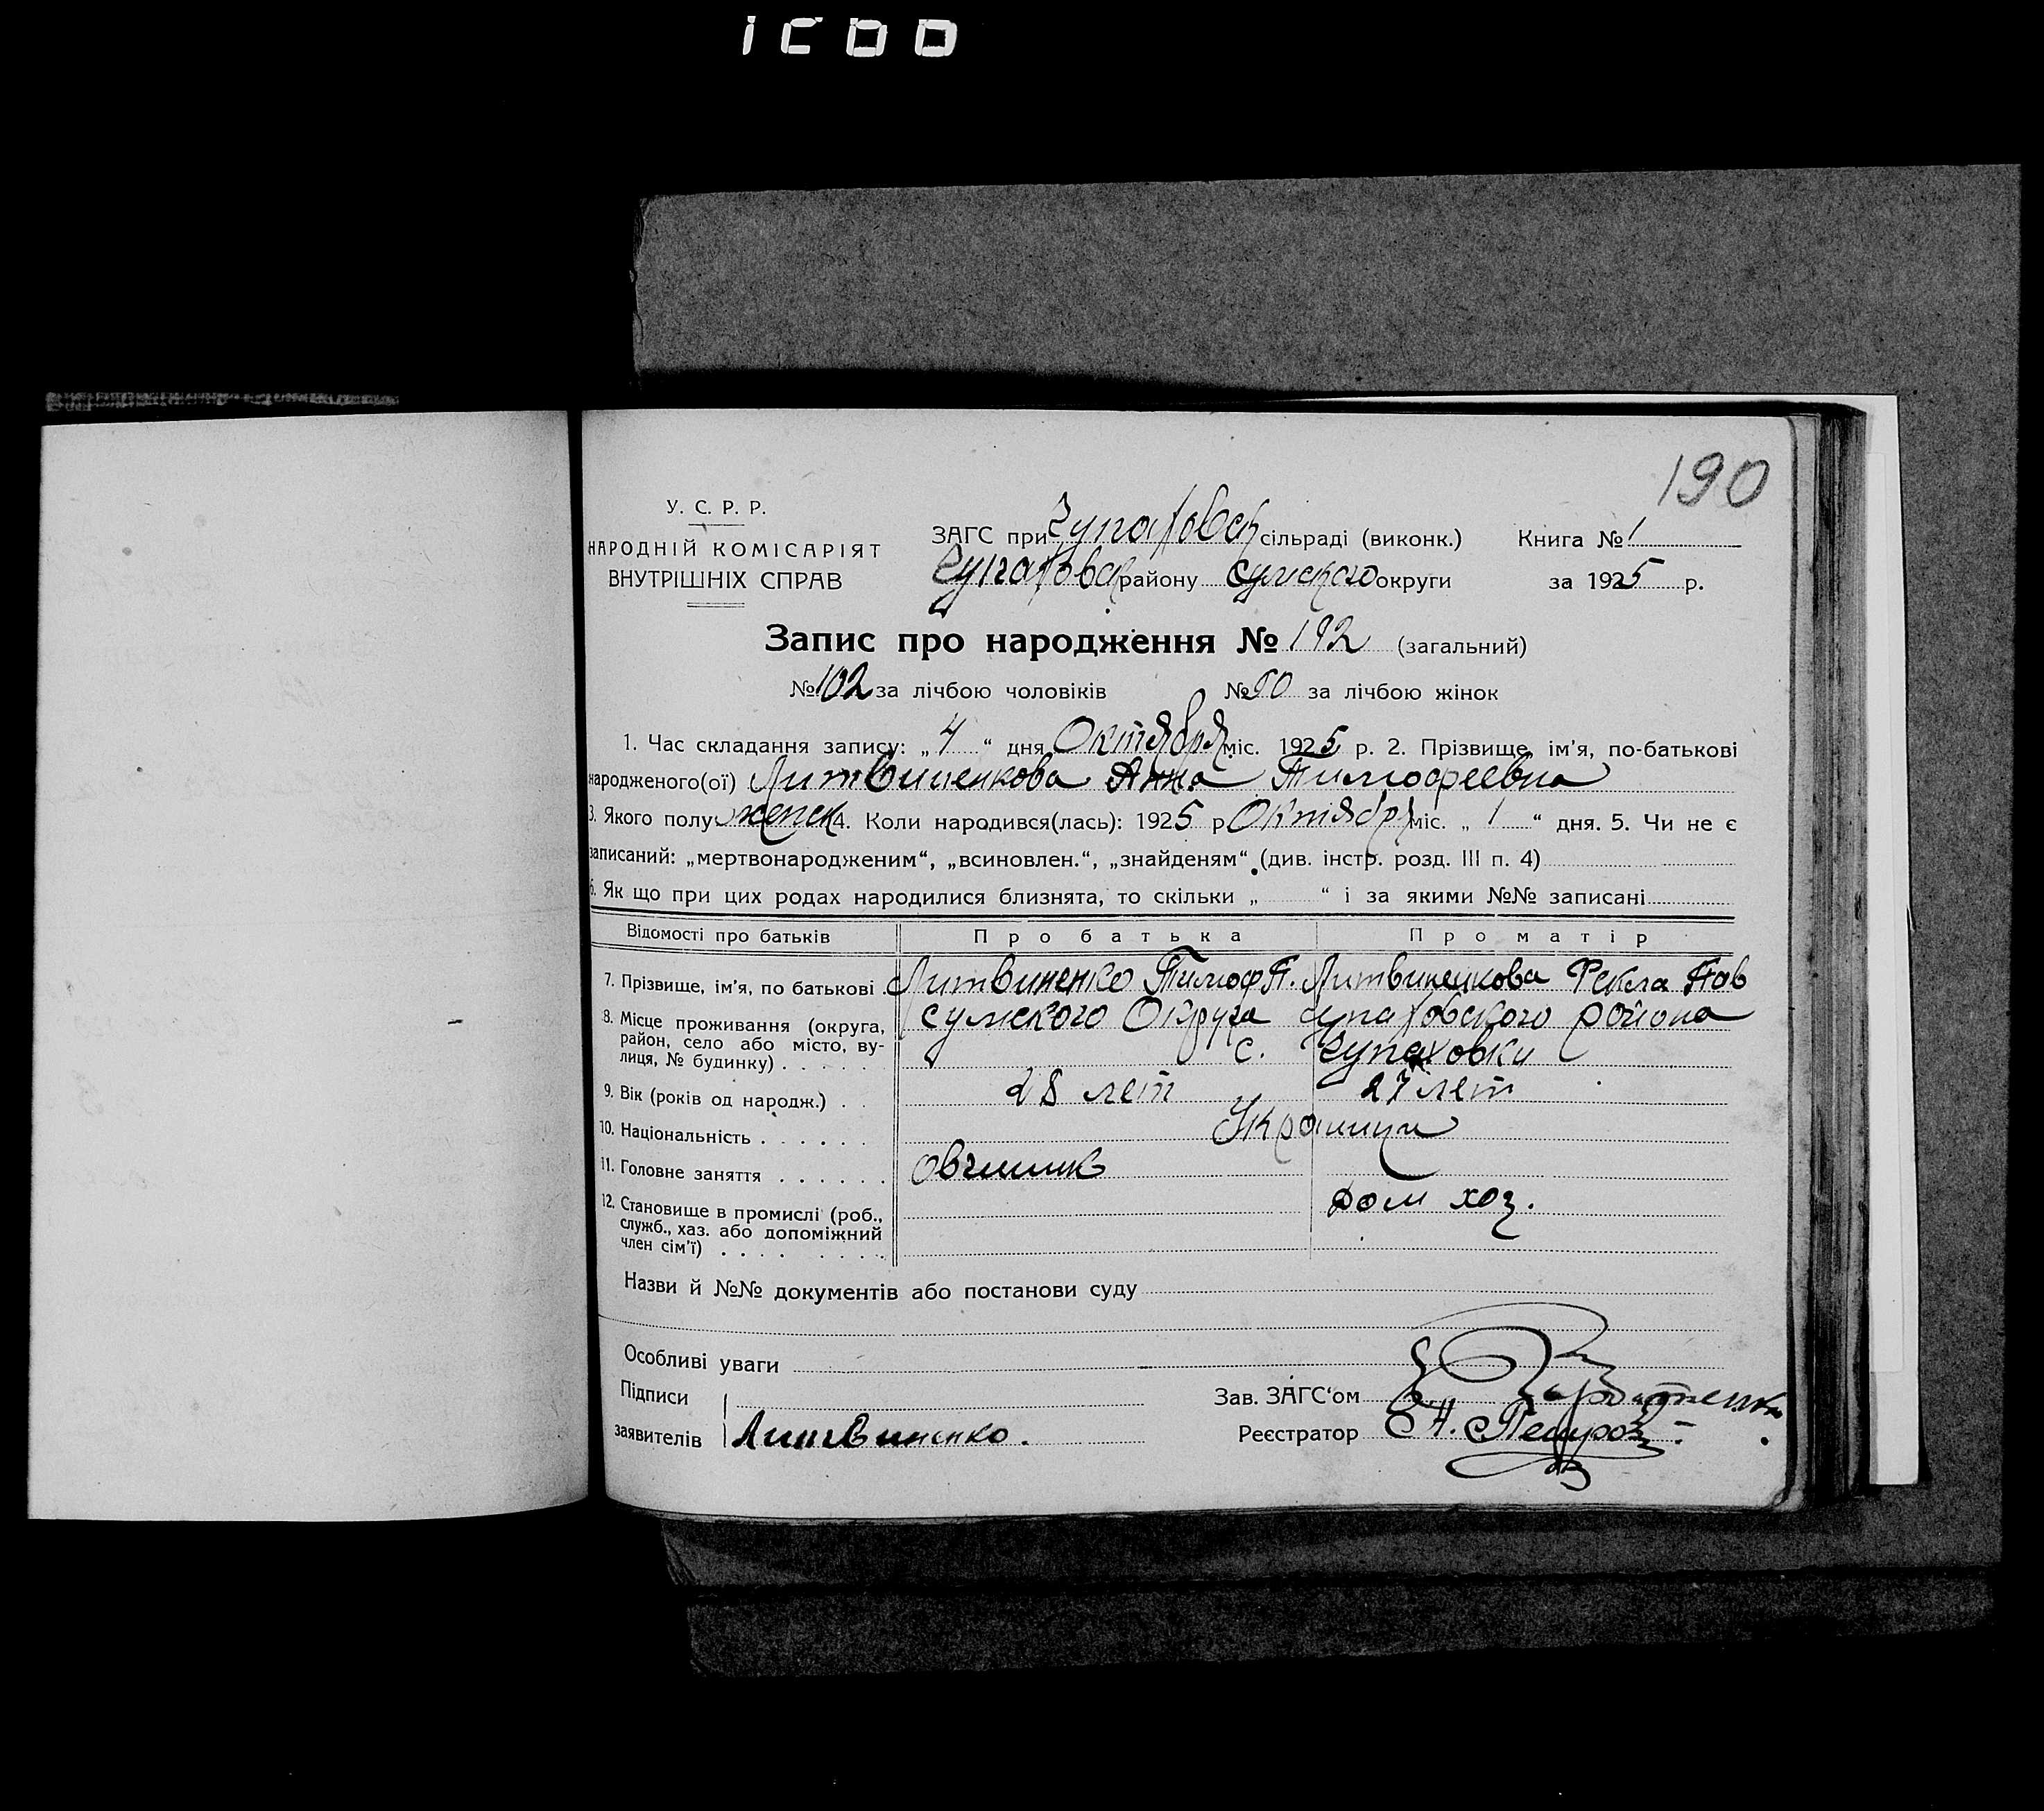 190
У. С. Р. Р.
НАРОДНІЙ КОМІСАРІЯТ
ВНУТРІШНІХ СПРАВ
ЗАГС при Чупаховск сільраді (виконк.) Книга № 1
Чупаховск району Сумского округи за 1925 р.
Запис про народження № 192 (загальний)
№ 102 за лічбою чоловіків № 90 за лічбою жінок
1. Час складання запису: „4“ дня Октября міс. 1925 р. 2. Прізвище, ім'я, по-батькові
народженого(ої) Литвиненкова Анна Тимофеевна
3. Якого полу женск 4. Коли народився(лась): 1925 р Октября міс. „1“ дня. 5. Чи не є
записаний: „мертвонародженим“, „всиновлен.“, „знайденям“ (див. інстр. розд. III п. 4)
6. Як що при цих родах народилися близнята, то скільки „ “ і за якими №№ записані
Відомості про батьків Про батька Про матір
7. Прізвище, ім'я, по батькові Литвиненко Тимоф П. Литвиненкова Фекла Пав
8. Місце проживання (округа, район, село або місто, вулиця, № будинку) Сумского Округа Чупаховского района
с. Чупаховки
9. Вік (років од народж.) 28 лет 27 лет
10. Національність Украинцы
11. Головне заняття овчинник
12. Становище в промислі (роб., служб., хаз. або допоміжний член сім'ї) дом хоз.
Назви й №№ документів або постанови суду
Особливі уваги
Підписи
заявителів Литвиненко.
Зав. ЗАГС'ом
Реєстратор